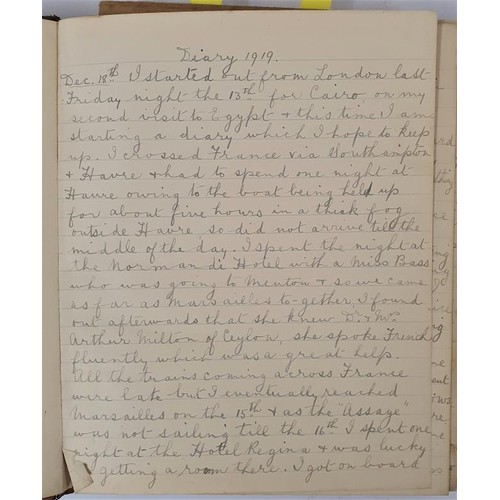 Diary 1919.
Dec. 18th I started out from London last
Friday night the 13th for Cairo, on my
second visit to Egypt & this time I am
starting a diary which I hope to keep
up. I crossed France via Southampton
& Havre & had to spend one night at
Havre owing to the boat being held up
for about five hours in a thick fog
outside Havre so did not arrive till the
middle of the day. I spent the night at
the Normandi Hotel with a Miss Bass
who was going to Mentow & so we came
as far as Marsailles to-gether, I found
out afterwards that she knew Dr & Mrs
Arthur Milton of Ceylon, she spoke French
fluently which was a great help.
All the trains coming across France
were late but I eventually reached
Marsailles on the 15th & as the "Assaye"
was not sailing till the 16th I spent one
night at the Hotel Regina & was lucky
getting a room there. I got on board